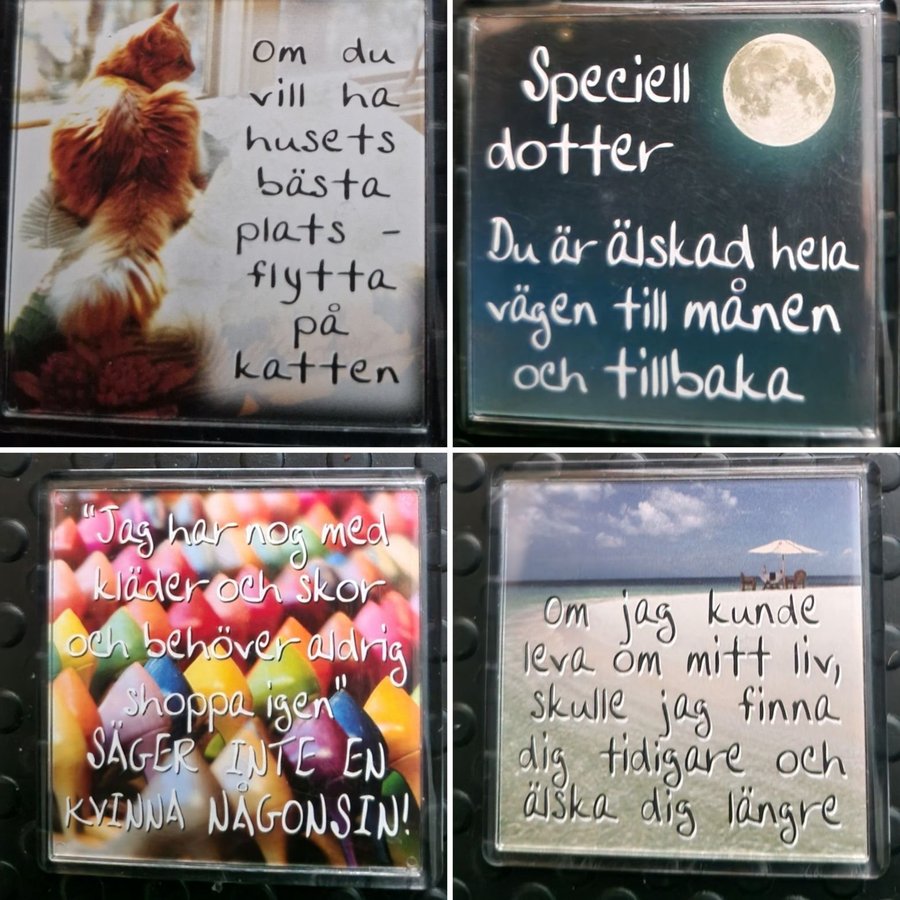 Om du
vill ha
husets
bästa
plats -
flytta
på
katten
Speciell
dotter
Du är älskad hela
vägen till månen
och tillbaka
"Jag har nog med
kläder och skor
och behöver aldrig
shoppa igen"
SÄGER INTE EN
KVINNA NÅGONSIN!
Om jag kunde
leva om mitt liv,
skulle jag finna
dig tidigare och
älska dig längre